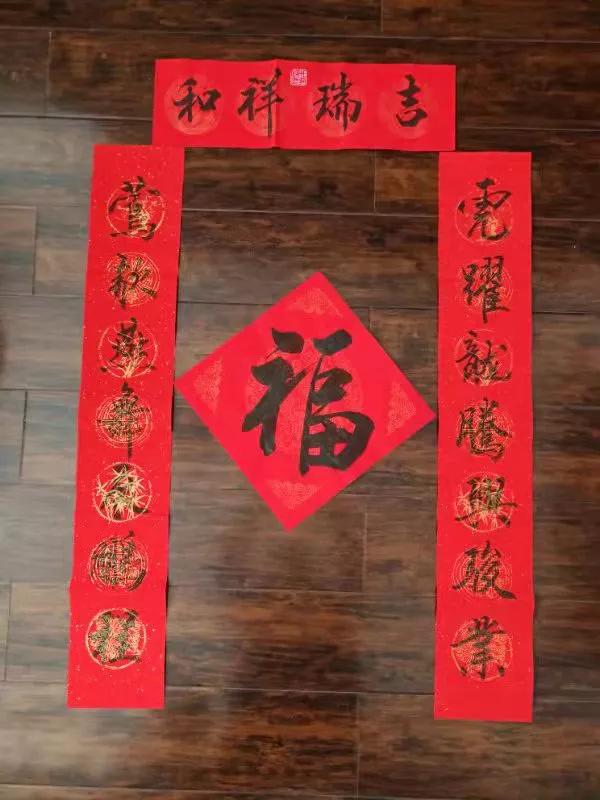 吉瑞祥和
虎躍龍騰興駿業
鶯歌燕舞鵬程
福